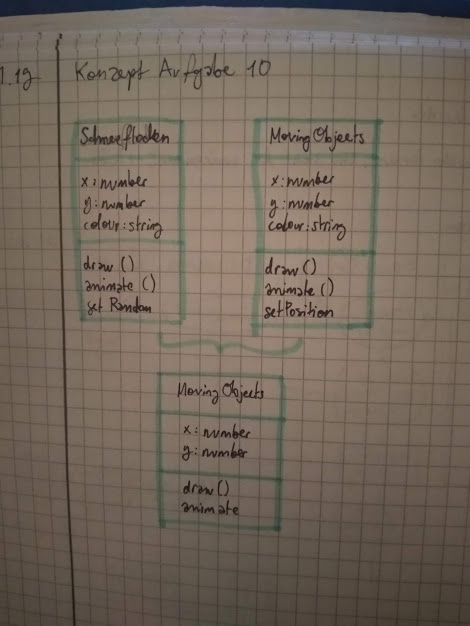 1.19
Konzept Aufgabe 10
Schneeflocken
x: number
y: number
colour: string
draw ()
animate ()
set Random
Moving Objects
x: number
y: number
colour: string
draw ()
animate ()
setPosition
Moving Objects
x: number
y: number
draw ()
animate